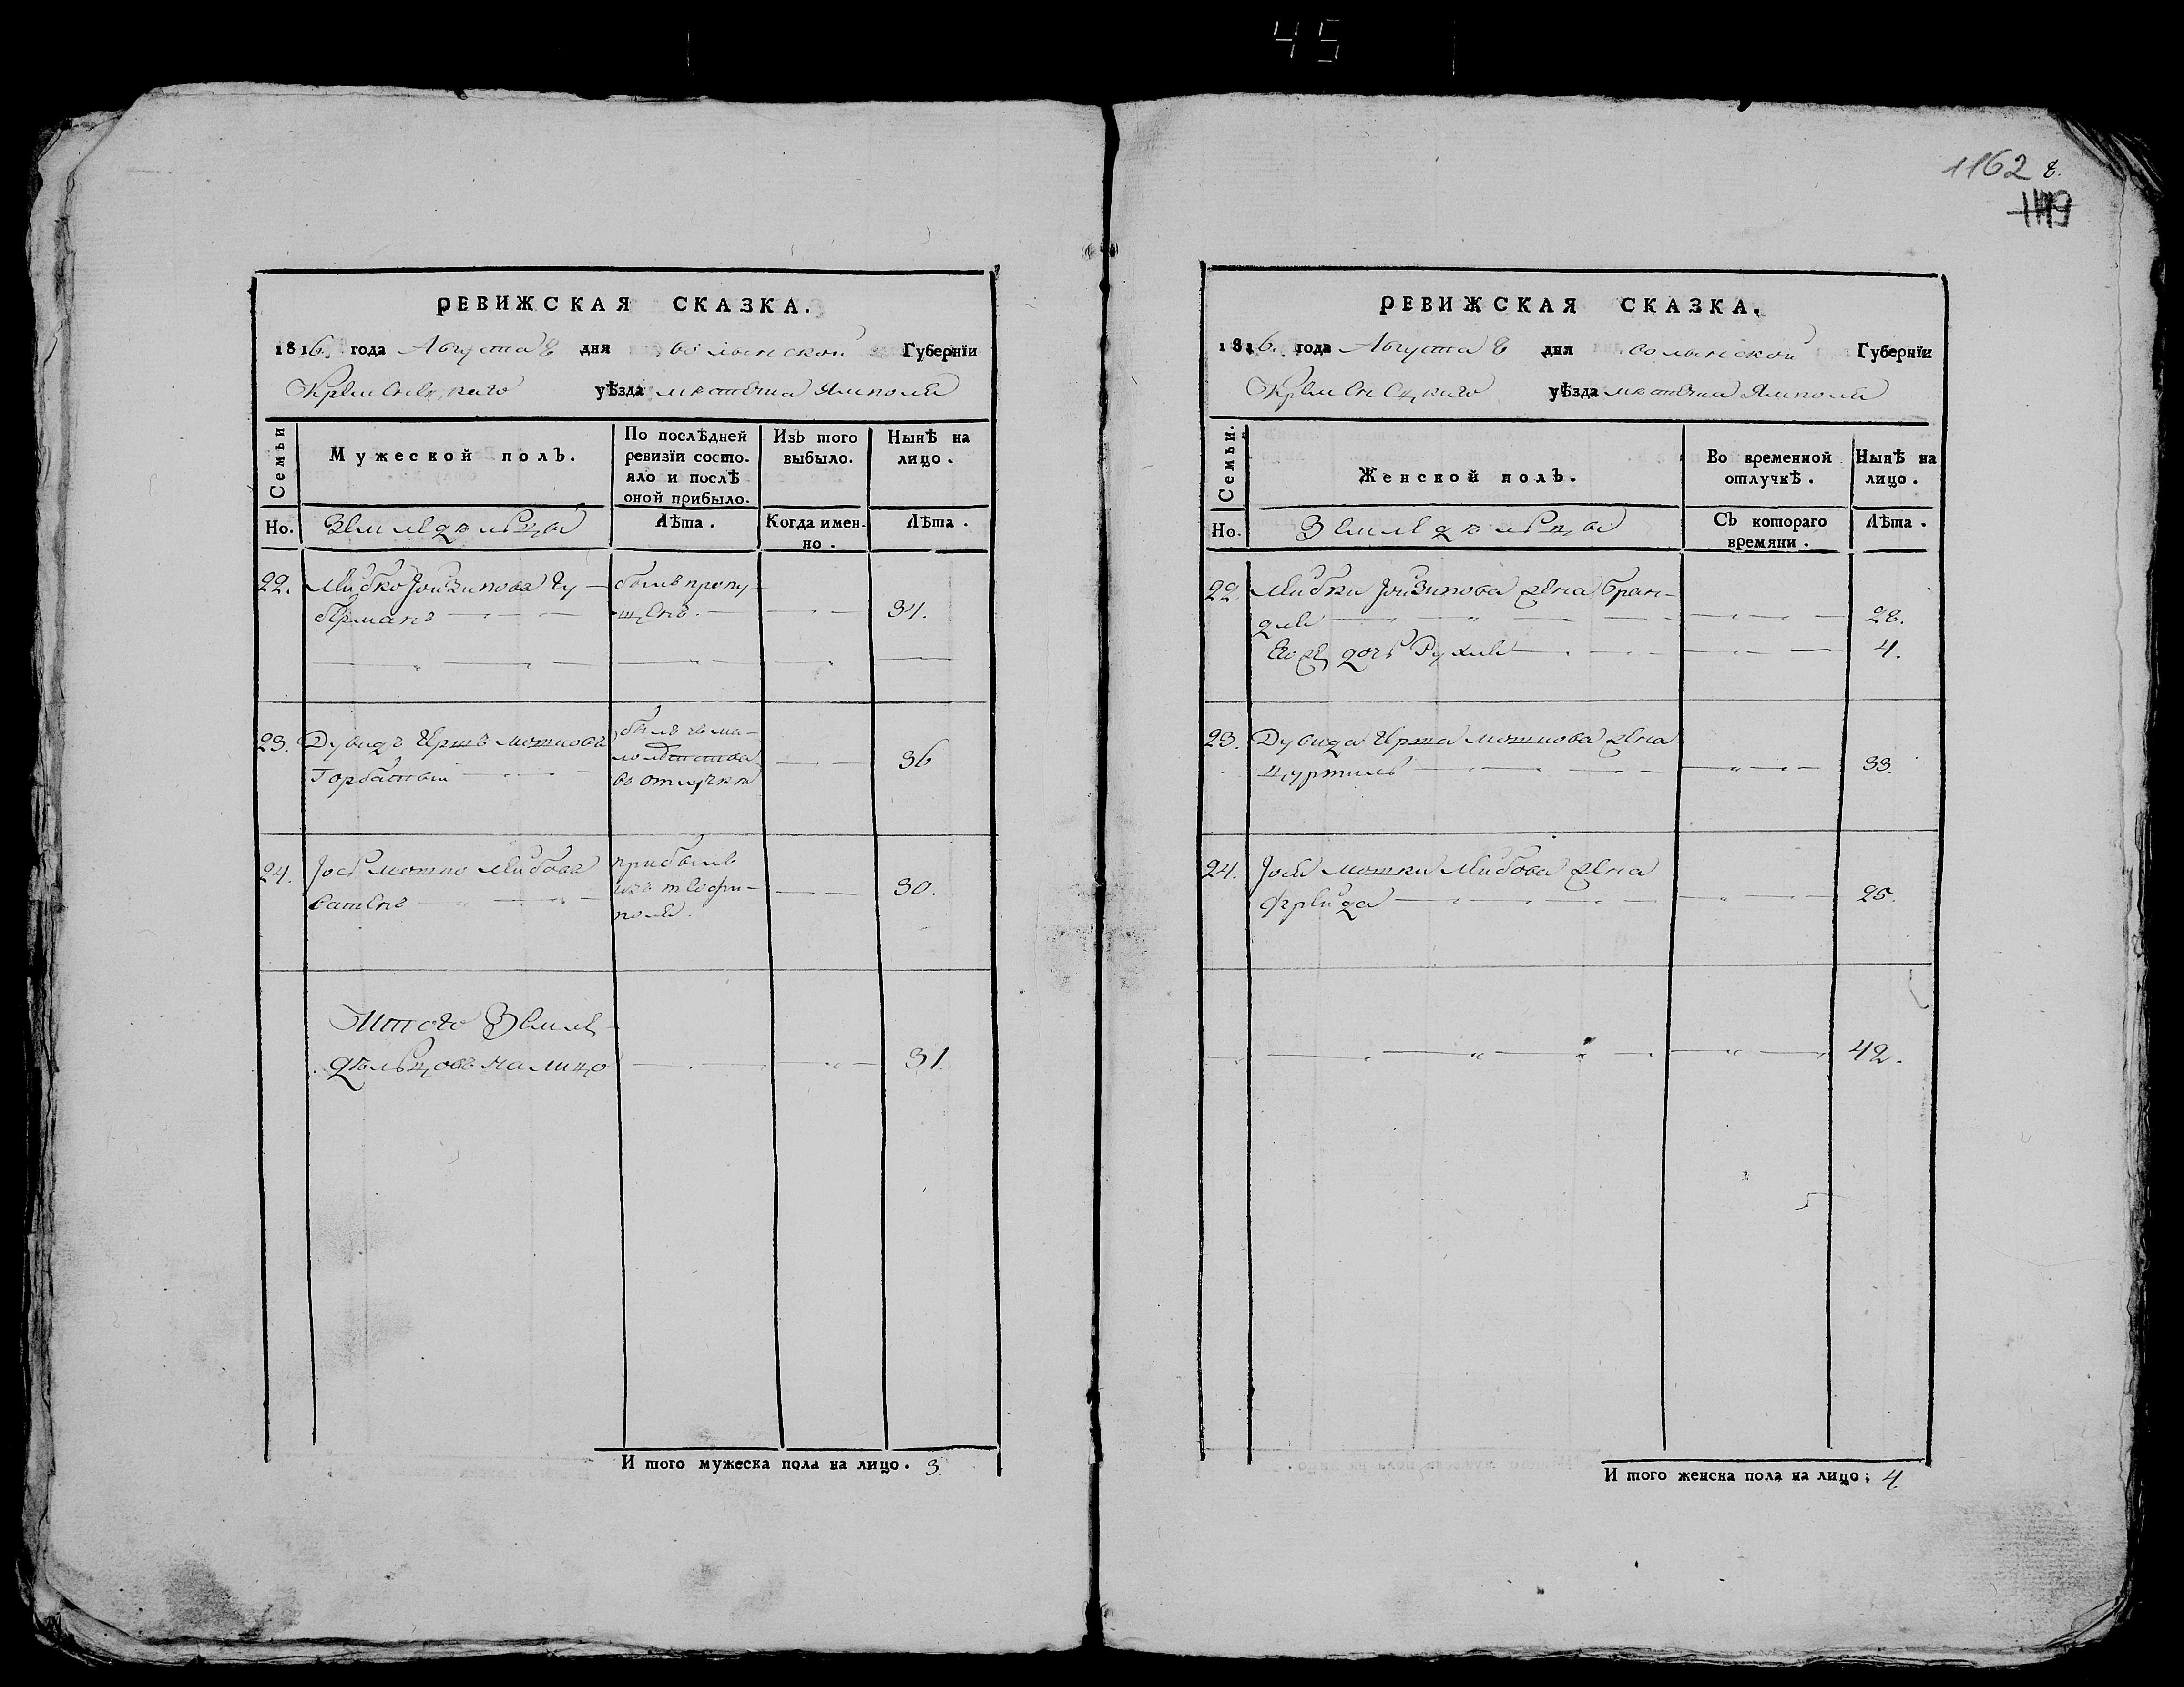 45
1162
1149
РЕВИЖСКАЯ СКАЗКА.
1816. года Августа 8 дня волынской Губерніи
Кременецкаго уѣзда мѣстечка Ямполя
Семьи
Мужеской полъ.
По послѣдней ревизіи состо-
яло и послѣ
оной прибыло.
Изъ того
выбыло.
Нынѣ на
лицо.
Но.
Земледѣльцы
Лѣта.
Когда имен-
но.
Лѣта.
22. Лейбко Іойзиповъ Гу- былъ пропу-
берманъ щенъ. 34.
23. Дувидъ Гершъ Мошковъ былъ въ ма-
Горбатый лолѣтства 36
во отлучкѣ
24. Іось Мошко Лейбовъ прибылъ
изъ теофи- 30.
поля.
Итого Земле-
дѣльцовъ налицо 31.
И того мужеска пола на лицо. 3.
РЕВИЖСКАЯ СКАЗКА.
1816. года Августа 8 дня волынской Губерніи
Кременецкаго уѣзда мѣстечка Ямполя
Семьи.
Женской полъ.
Во временной
отлучкѣ.
Нынѣ на
лицо.
Но.
Земледѣльцы
Съ котораго
времяни.
Лѣта.
22. Лейбки Іойзипова жена Бран-
дле 28.
Его же дочь Рухле 4.
23. Дувида Герша Мошкова жена
Цуртель 33.
24. Іося Мошки Лейбова жена
Фрейда 25.
42.
И того женска пола на лицо; 4.